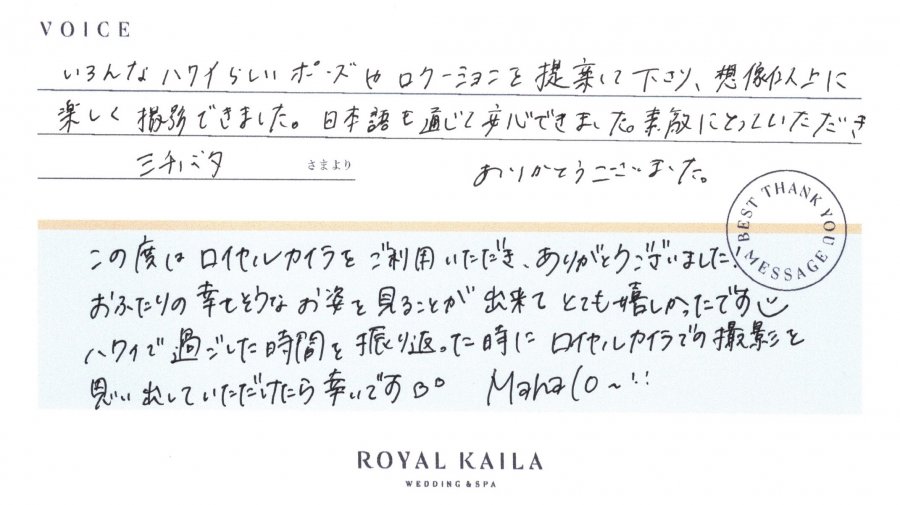 VOICE
いろんなハワイらしいポーズやロケーションを提案して下さり、想像以上に
楽しく撮影できました。日本語も通じて安心できました。素敵にとっていただき
ミチバタ さまより
ありがとうございました。
BEST THANK YOU MESSAGE
この度はロイヤルカイラをご利用いただき、ありがとうございました!
おふたりの幸せそうなお姿を見ることが出来てとても嬉しかったです
ハワイで過ごした時間を振り返った時にロイヤルカイラでの撮影を
思い出していただけたら幸いです。 Mahalo~
ROYAL KAILA
WEDDING & SPA